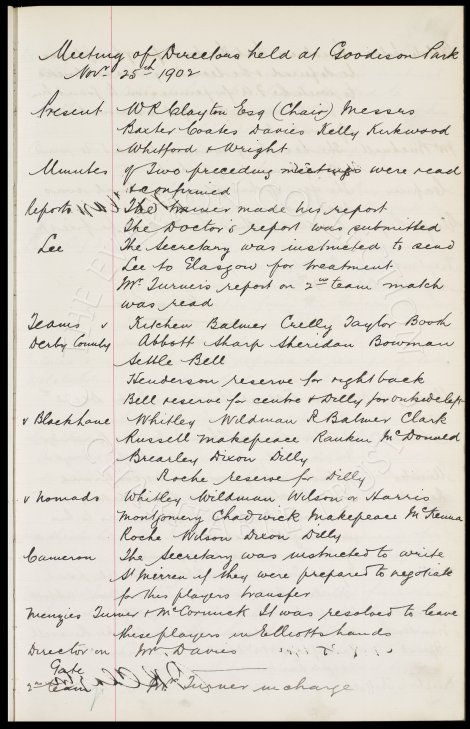 Meeting of Directors held at Goodison Park
Novr 25th 1902
Present W R Clayton Esq (Chair) Messrs
Baxter Coates Davies Kelly Kirkwood
Whitford & Wright
Minutes of Two preceding meetings were read
& confirmed
Reports The trainer made his report
The Doctor's report was submitted
Lee The Secretary was instructed to send
Lee to Glasgow for treatment
Mr Turner's report on 2nd team match
was read
Teams v Kitchen Balmer Crelly Taylor Booth
Derby County Abbott Sharp Sheridan Bowman
Settle Bell
Henderson reserve for right back
Bell reserve for centre & Dilly for outside left
v Black Lane Whitley Wildman R Balmer Clark
Russell Makepeace Rankin McDonald
Brearley Dixon Dilly
Roche reserve for Dilly
v Nomads Whitley Wildman Wilson or Harris
Montgomery Chadwick Makepeace McKenna
Roche Wilson Dixon Dilly
Cameron The Secretary was instructed to write
St Mirren if they were prepared to negotiate
for this players transfer
Menzies Turner & McCormick It was resolved to leave
these players in Elliotts hands
Director on Mr Davies
Gate
2nd Team Mr Turner in charge